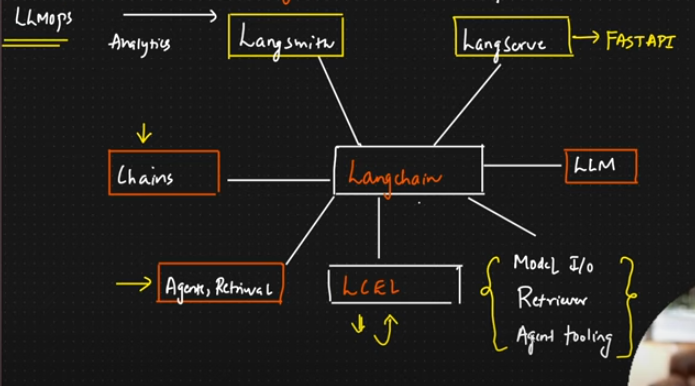 LLMOPS
Analytics
Langsmith
Langserve
FASTAPI
Chains
Langchain
LLM
Agents, Retrival
LCEL
Model I/O
Retriever
Agent tooling